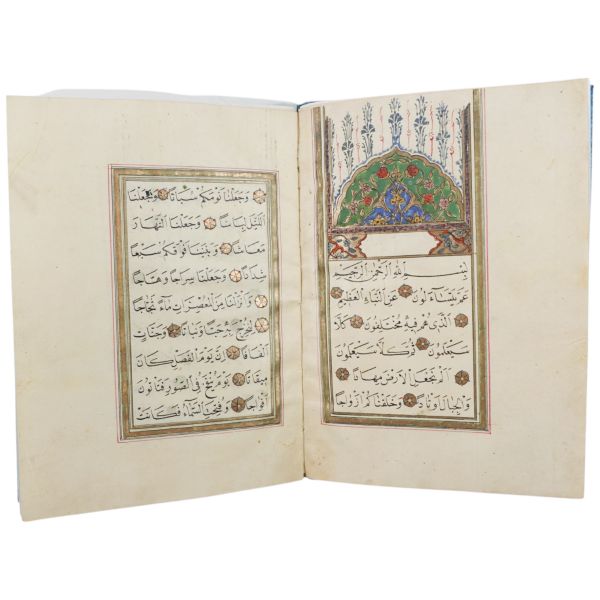 بِسْمِ اللهِ الرَّحْمٰنِ الرَّحِيمِ
عَمَّ يَتَسَاءَلُونَ عَنِ النَّبَاِ الْعَظِيمِ
الَّذِى هُمْ فِيهِ مُخْتَلِفُونَ كَلَّا
سَيَعْلَمُونَ ثُمَّ كَلَّا سَيَعْلَمُونَ
اَلَمْ نَجْعَلِ الْاَرْضَ مِهَادًا
وَالْجِبَالَ اَوْتَادًا وَخَلَقْنَاكُمْ اَزْوَاجًا
وَجَعَلْنَا نَوْمَكُمْ سُبَاتًا وَجَعَلْنَا
الَّيْلَ لِبَاسًا وَجَعَلْنَا النَّهَارَ
مَعَاشًا وَبَنَيْنَا فَوْقَكُمْ سَبْعًا
شِدَادًا وَجَعَلْنَا سِرَاجًا وَهَّاجًا
وَاَنْزَلْنَا مِنَ الْمُعْصِرَاتِ مَاءً ثَجَّاجًا
لِنُخْرِجَ بِهِ حَبًّا وَنَبَاتًا وَجَنَّاتٍ
اَلْفَافًا اِنَّ يَوْمَ الْفَصْلِ كَانَ
مِيقَاتًا يَوْمَ يُنْفَخُ فِى الصُّورِ فَتَأْتُونَ
اَفْوَاجًا وَفُتِحَتِ السَّمَاءُ فَكَانَتْ